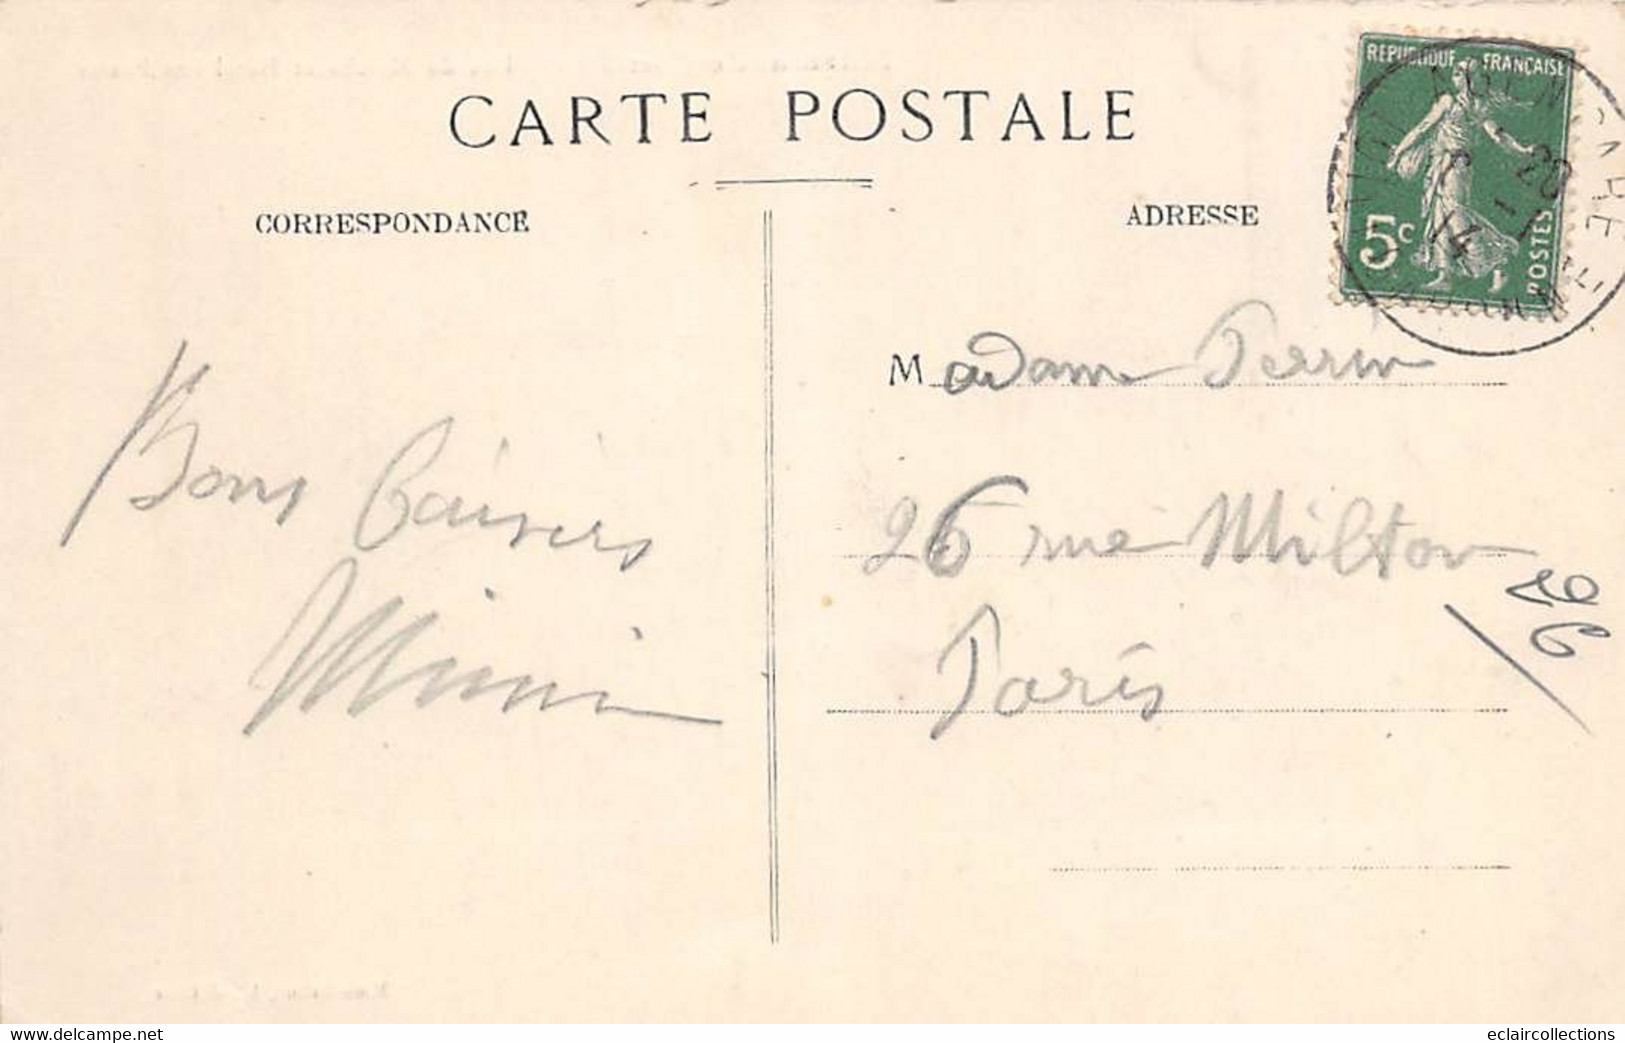 CARTE POSTALE
CORRESPONDANCE
ADRESSE
REPUBLIQUE FRANÇAISE
5c
POSTES
Madame Perrin
26 rue Milton
Paris
Bons baisers
Mimi
26
www.delcampe.net
eclaircollections